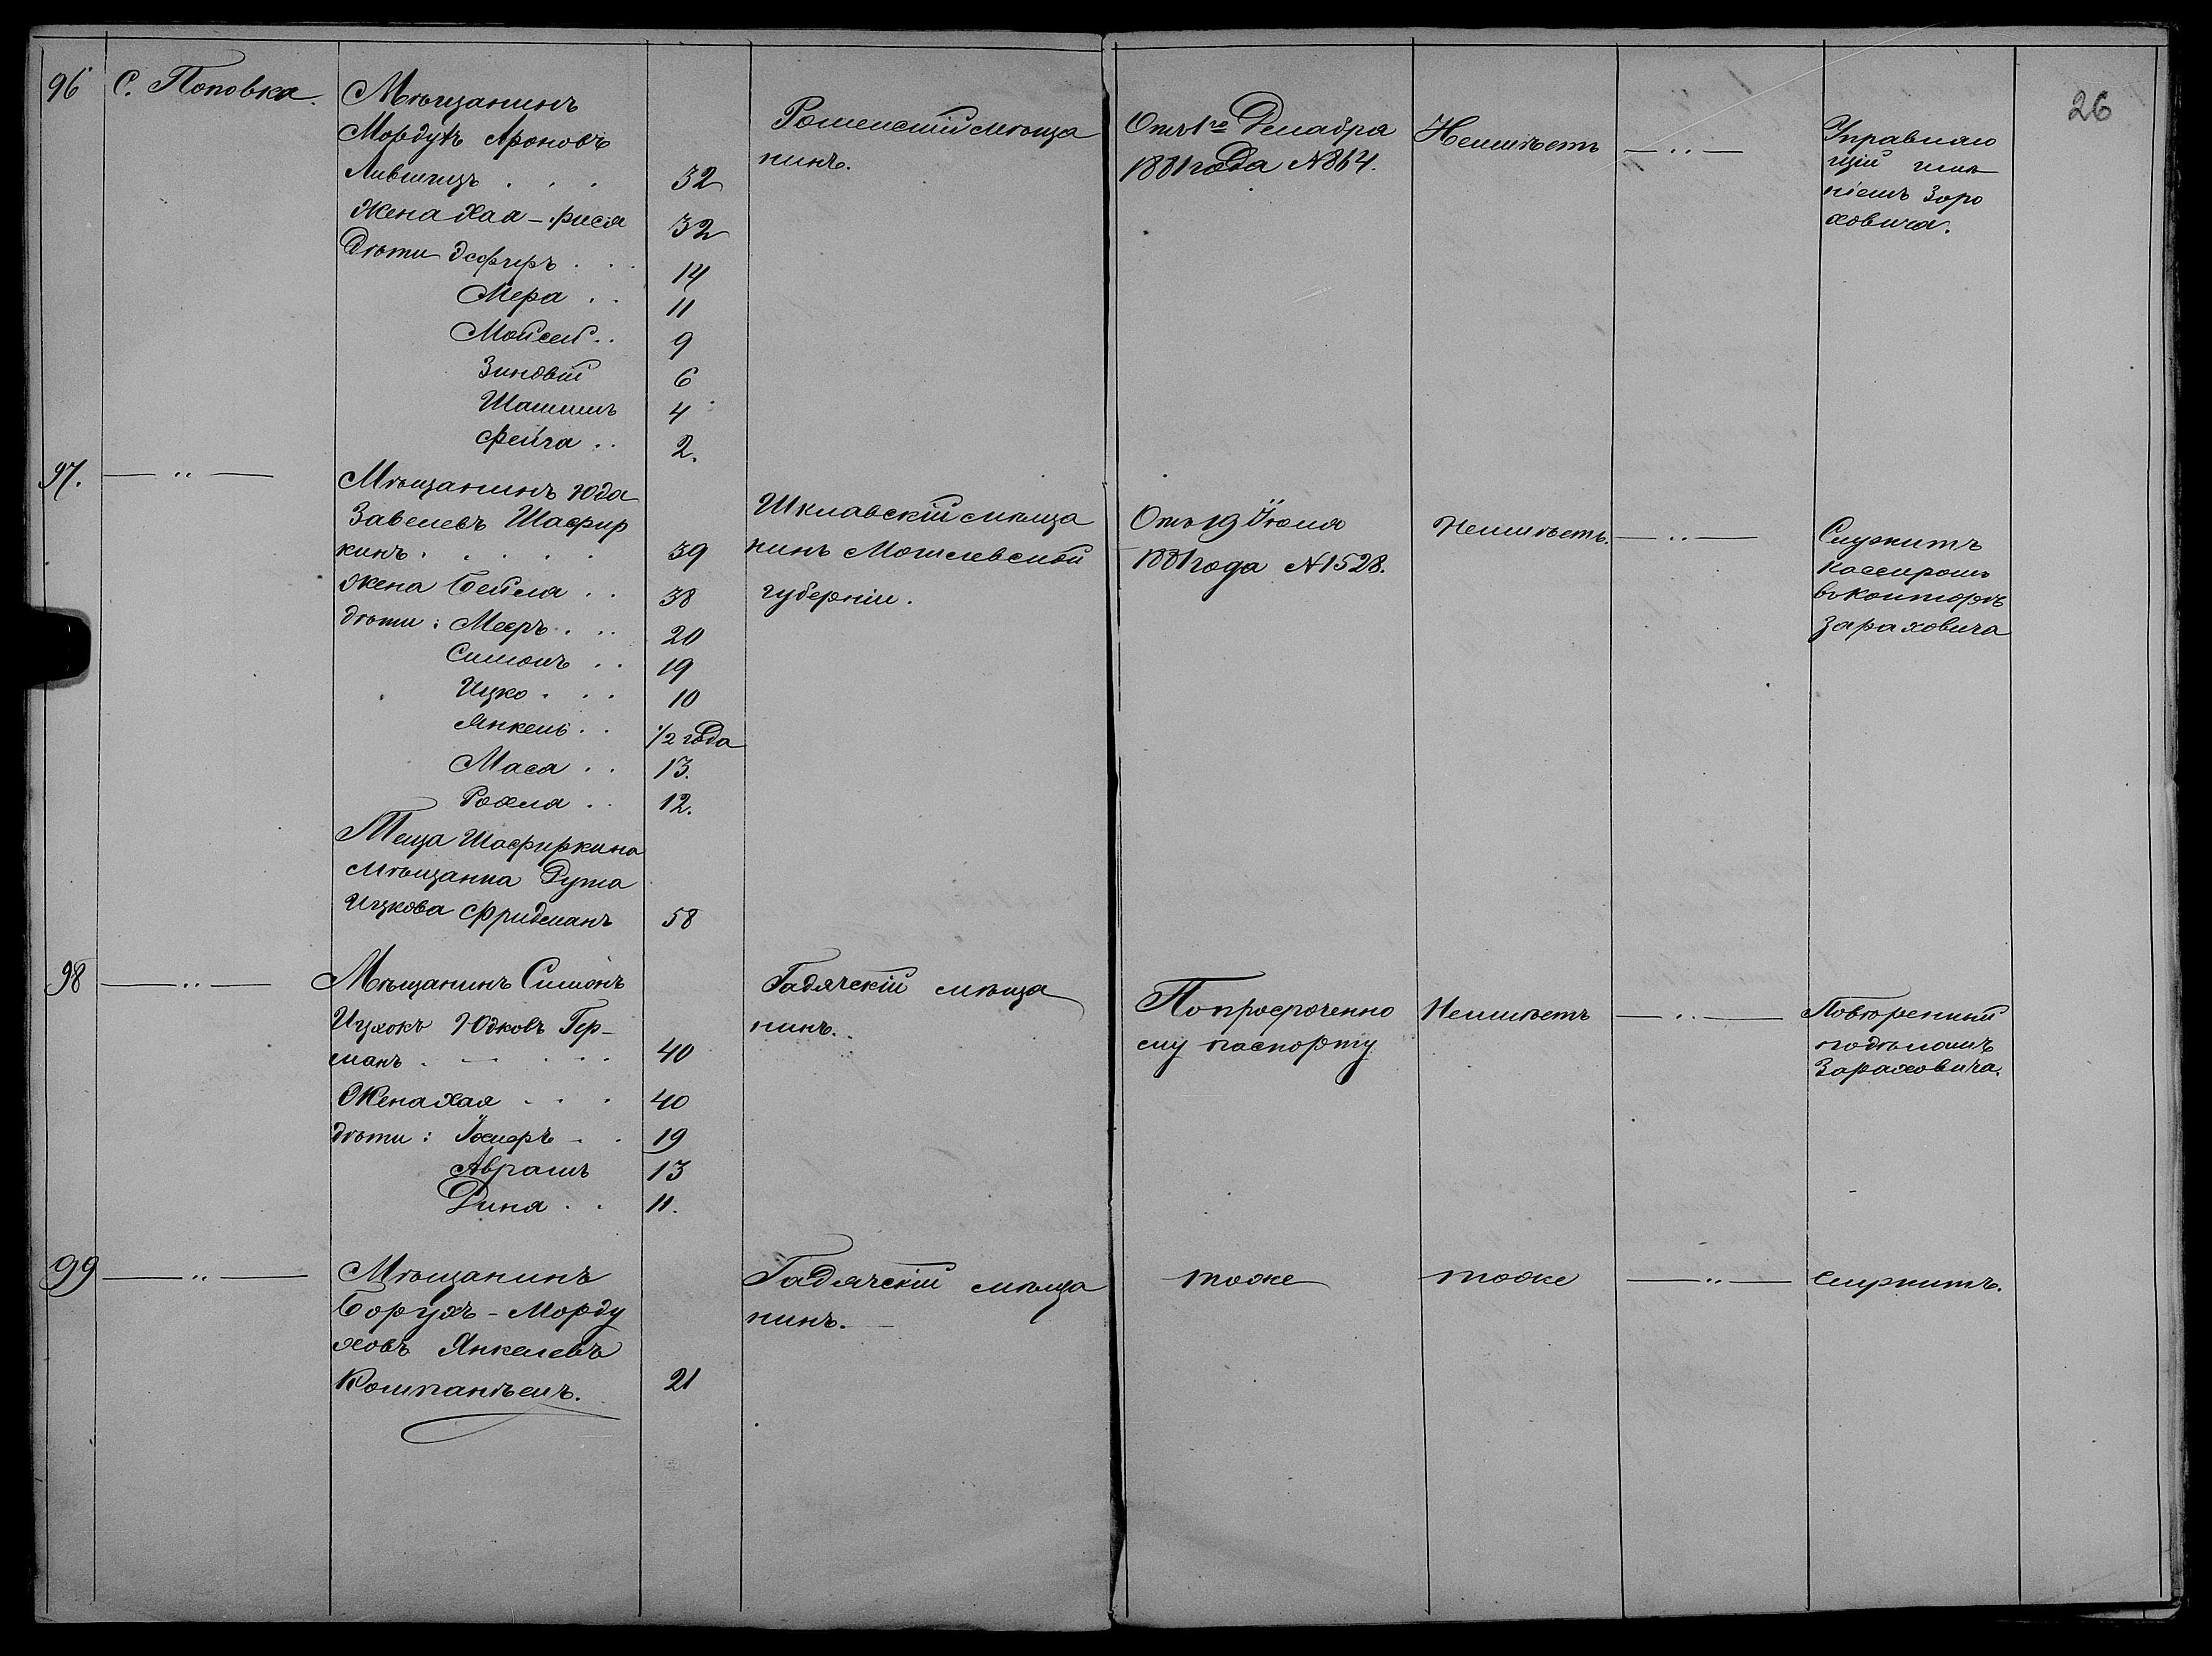 26
96 С. Поповка.
Мѣщанинъ
Мордухъ Ароновъ
Лившицъ . . . 32
Жена Хая-фися 32
Дѣти Эсфирь . . . 14
Мера . . 11
Мойсей . . 9
Зиновій 6
4
Фейга . . 2.
Роменскій мѣща
нинъ.
Отъ 1го Декабря
1881 года №864.
Неимѣетъ
— „ —
Управляю
щій имѣ
ніемъ Заро
ховича.
97. — „ —
Мѣщанинъ Юда
Завелевъ Шафир
кинъ . . . . . 39
Жена Бейля . . 38
дѣти: Мееръ . . . 20
Симонъ . . 19
Ицко . . . 10
Янкель . . 1/2 года
Мася . . 13.
Рохля . . 12.
Теща Шафиркина
Мѣщанка Рута
Ицкова Фридманъ 58
Шклавскій мѣща
нинъ Могилевской
губерніи.
Отъ 19 Іюля
1881 года №1528.
Неимѣетъ.
— „ —
Служитъ
Кассиромъ
въ Конторѣ
Зараховича
98 — „ —
Мѣщанинъ Симонъ
Ицхокъ Юдковъ Гер-
манъ . . . . . 40
Жена Хая . . . 40
дѣти: . . 19
Абрамъ 13
Дина . . 11.
Гадячскій мѣща
нинъ.
Попросроченно
му паспорту
Неимѣетъ
— „ —
Повѣренный
Зараховича.
99 — „ —
Мѣщанинъ
Борухъ-Морду
ховъ Янкелевъ
Компанѣецъ. 21
Гадячскій мѣща
нинъ.—
тоже
тоже
— „ —
Служитъ.